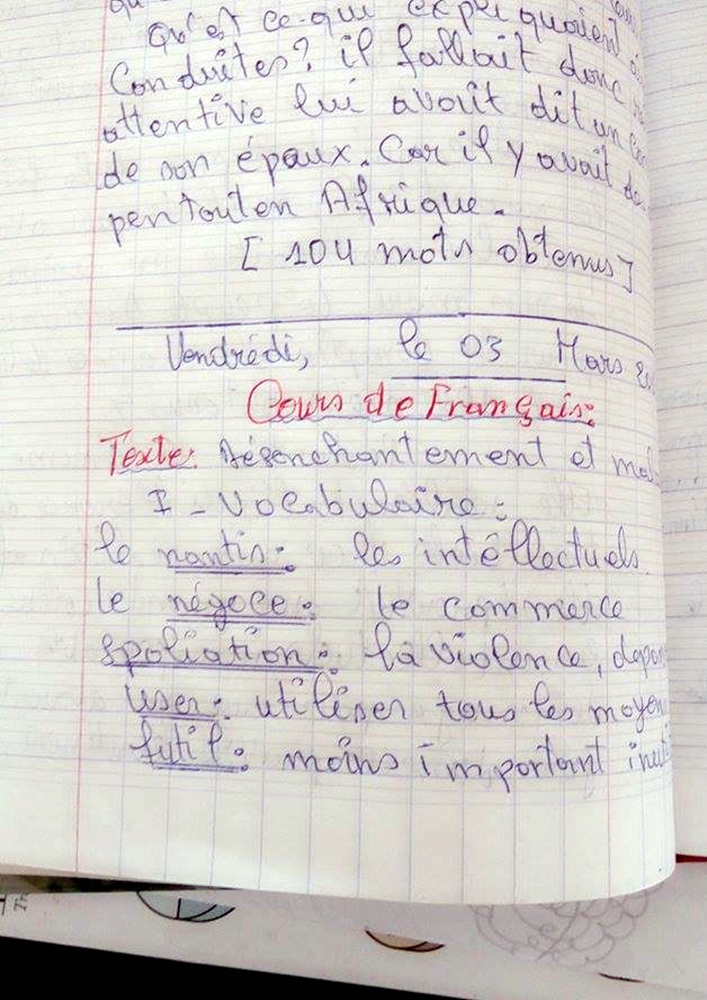 Qu'est ce-qui expliquoient
Conduites? il fallait donc
attentive lui avait dit un
de son époux. Car il y avait de
pentouten Afrique.
[ 104 mots obtenus ]
Vendrédi, le 03 Mars
Cours de Français:
Texte: Désenchantement et
I - Vocabulaire:
le nantis: les intéllectuels.
le négoce: le commerce
spoliation: la violence,
user: utiliser tous les moyen
futil: moins important